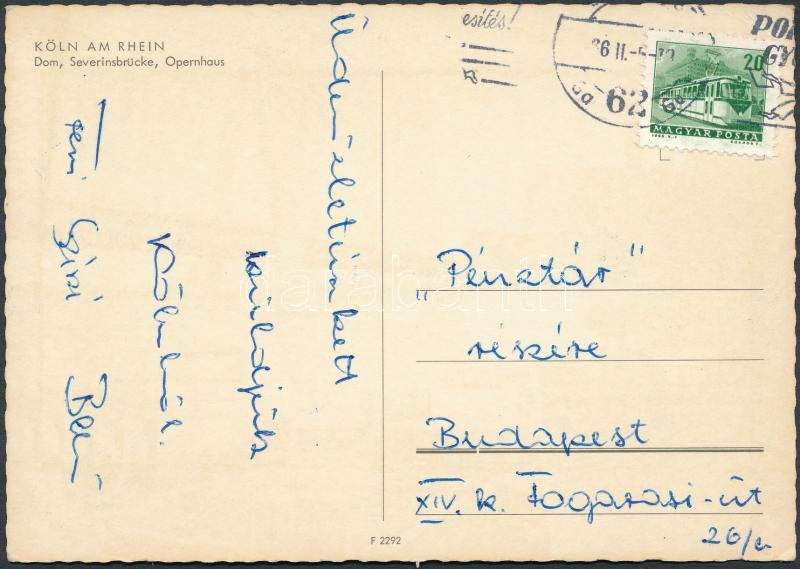 KÖLN AM RHEIN
Dom, Severinsbrücke, Opernhaus
Üdvözletünket
küldjük
Kölnből.
Feri Gizi
esítés!
66 II.-5-19
62
20
MAGYAR POSTA
"Pénztár"
részére
Budapest
XIV. k. Fogarasi-út
26/a
F 2292
darabanth